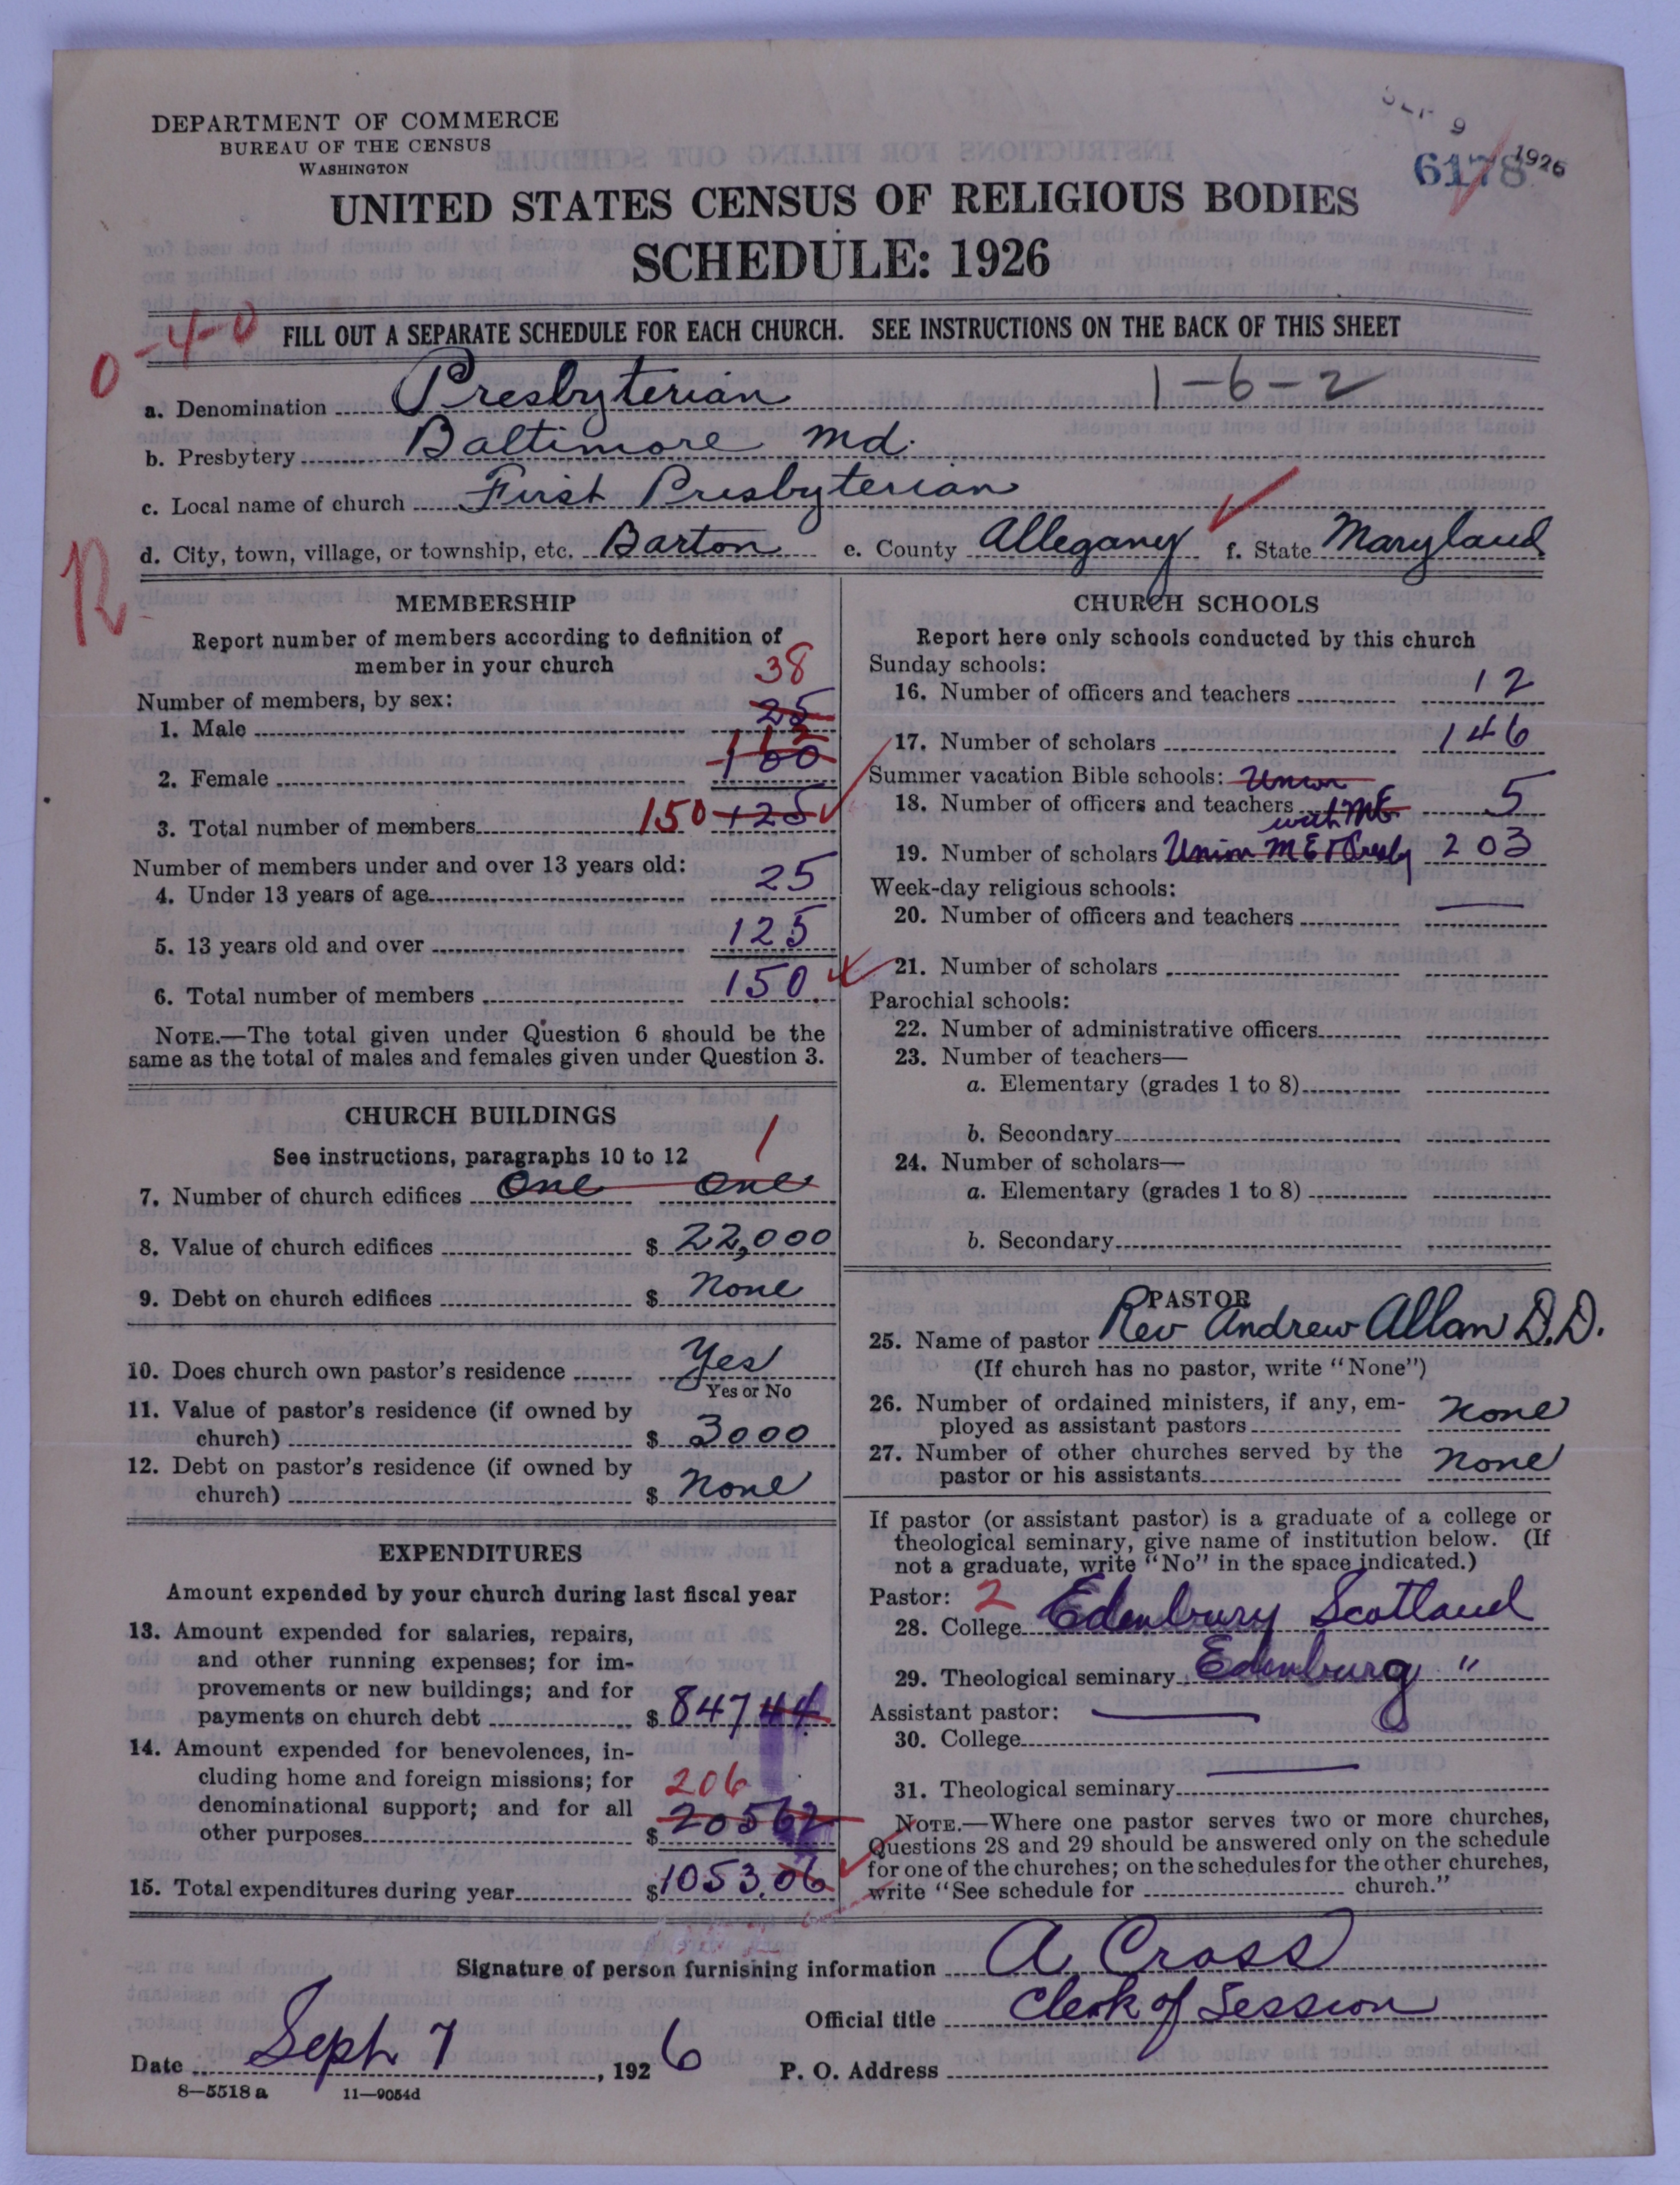 DEPARTMENT OF COMMERCE
BUREAU OF THE CENSUS
WASHINGTON
SEP 9 1926
6178
UNITED STATES CENSUS OF RELIGIOUS BODIES
SCHEDULE: 1926
0-4-0
FILL OUT A SEPARATE SCHEDULE FOR EACH CHURCH. SEE INSTRUCTIONS ON THE BACK OF THIS SHEET
1-6-2
a. Denomination Presbyterian
b. Presbytery Baltimore Md.
c. Local name of church First Presbyterian
d. City, town, village, or township, etc. Barton e. County Allegany f. State Maryland
R
MEMBERSHIP
Report number of members according to definition of
member in your church
38
Number of members, by sex:
1. Male 25
112
2. Female 100
3. Total number of members 150 125
Number of members under and over 13 years old:
4. Under 13 years of age 25
5. 13 years old and over 125
6. Total number of members 150
NOTE.—The total given under Question 6 should be the
same as the total of males and females given under Question 3.
CHURCH BUILDINGS
See instructions, paragraphs 10 to 12
1
7. Number of church edifices One One
8. Value of church edifices $ 22,000
9. Debt on church edifices $ None
10. Does church own pastor's residence Yes
Yes or No
11. Value of pastor's residence (if owned by
church) $ 3000
12. Debt on pastor's residence (if owned by
church) $ None
EXPENDITURES
Amount expended by your church during last fiscal year
13. Amount expended for salaries, repairs,
and other running expenses; for im-
provements or new buildings; and for
payments on church debt $ 847 44
14. Amount expended for benevolences, in-
cluding home and foreign missions; for
denominational support; and for all
other purposes $ 206 205 62
15. Total expenditures during year $ 1053.06
CHURCH SCHOOLS
Report here only schools conducted by this church
Sunday schools:
16. Number of officers and teachers 12
17. Number of scholars 146
Summer vacation Bible schools: Union
18. Number of officers and teachers with ME 5
19. Number of scholars Union M E & Presby 203
Week-day religious schools:
20. Number of officers and teachers
21. Number of scholars
Parochial schools:
22. Number of administrative officers
23. Number of teachers—
a. Elementary (grades 1 to 8)
b. Secondary
24. Number of scholars—
a. Elementary (grades 1 to 8)
b. Secondary
PASTOR
25. Name of pastor Rev Andrew Allan D.D.
(If church has no pastor, write "None")
26. Number of ordained ministers, if any, em-
ployed as assistant pastors None
27. Number of other churches served by the
pastor or his assistants None
If pastor (or assistant pastor) is a graduate of a college or
theological seminary, give name of institution below. (If
not a graduate, write "No" in the space indicated.)
Pastor: 2
28. College Edenbury Scotland
29. Theological seminary Edenburg "
Assistant pastor:
30. College
31. Theological seminary
NOTE.—Where one pastor serves two or more churches,
Questions 28 and 29 should be answered only on the schedule
for one of the churches; on the schedules for the other churches,
write "See schedule for church."
Signature of person furnishing information A Cross
Official title Clerk of Session
Date Sept 7, 1926 P. O. Address
8—5518 a 11—9054d